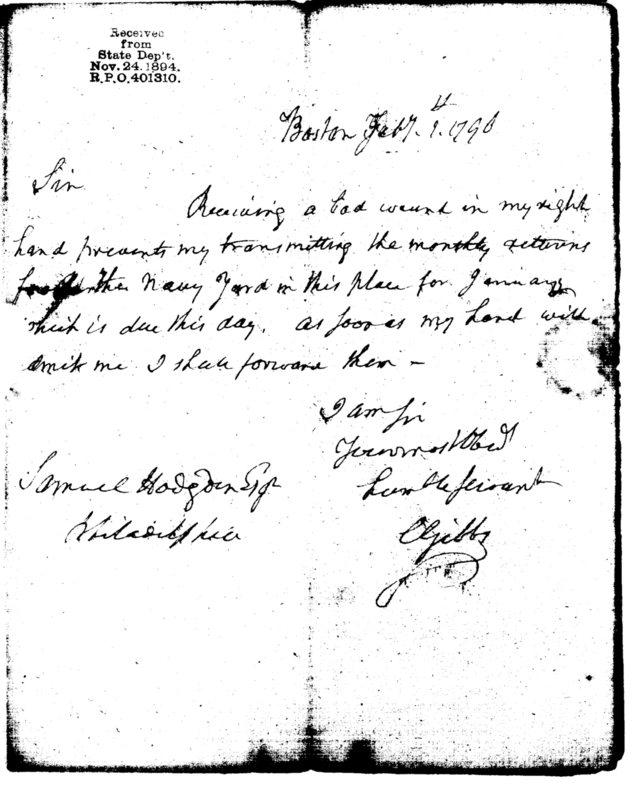 Received
from
State Dep't.
Nov. 24. 1894.
R.P.O. 401310.
Boston Feby. 1st. 1798
Sir
Receiving a bad wound in my right
hand prevents my transmitting the monthly returns
for the Navy Yard in this place for January
which is due this day. as soon as my hand will
admit me I shall forward them —
I am Sir
Your most Obed
humble Servant
Samuel Hodgdon Esqr
Philadelphia
C Gibbs